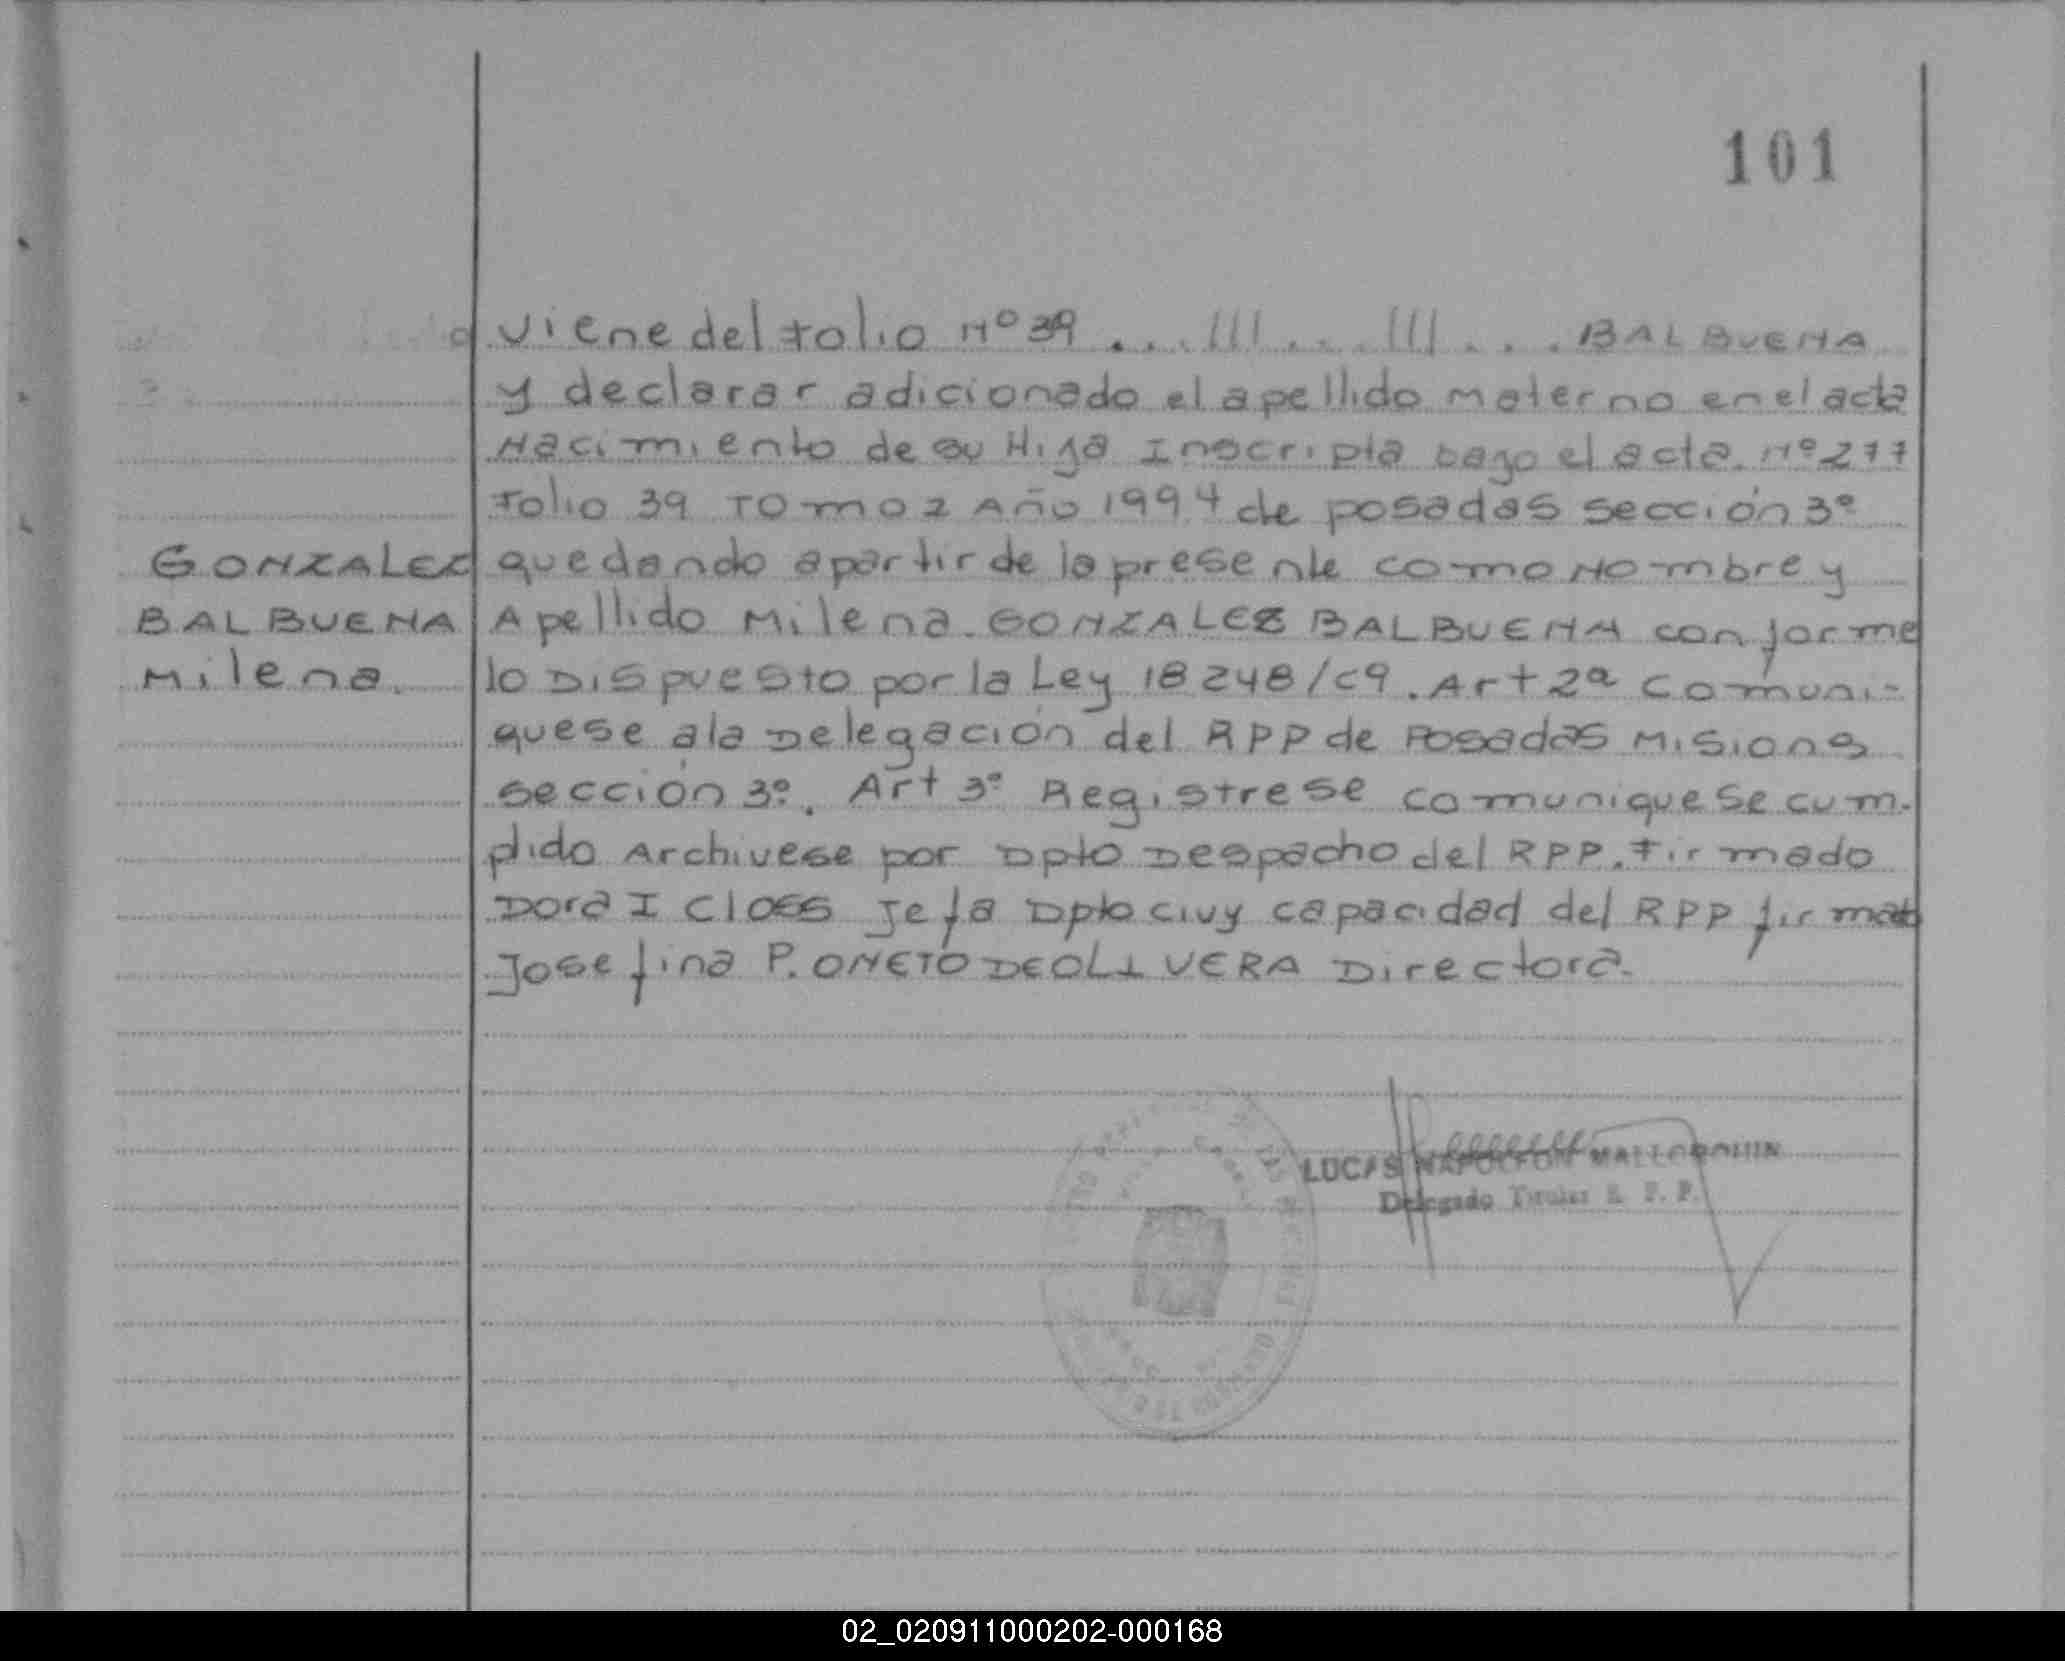 101
viene del Folio Nº 39 ... /// ... /// ... BALBUENA
y declarar adicionado el apellido materno en el acta
Nacimiento de su Hija Inscripta bajo el acta. Nº 277
Folio 39 TOmO 2 Año 1994 de posadas sección 3º
GONZALEZ
BALBUENA
Milena.
quedando apartir de la presente como Nombre y
Apellido Milena. GONZALEZ BALBUENA conforme
lo Dispuesto por la Ley 18248/69. Art 2ª Comuni-
quese ala Delegación del RPP de Posadas Misiones
sección 3º. Art 3º Registrese comuniquese cum-
plido Archivese por Dpto Despacho del RPP. Firmado
Dora I Closs Jefa Dpto civ y capacidad del RPP firmado
Josefina P. ONETO DE OLIVERA Directora.
LUCAS NAPOLEON MALLORQUIN
Delegado Titular R. P. P.
02_020911000202-000168